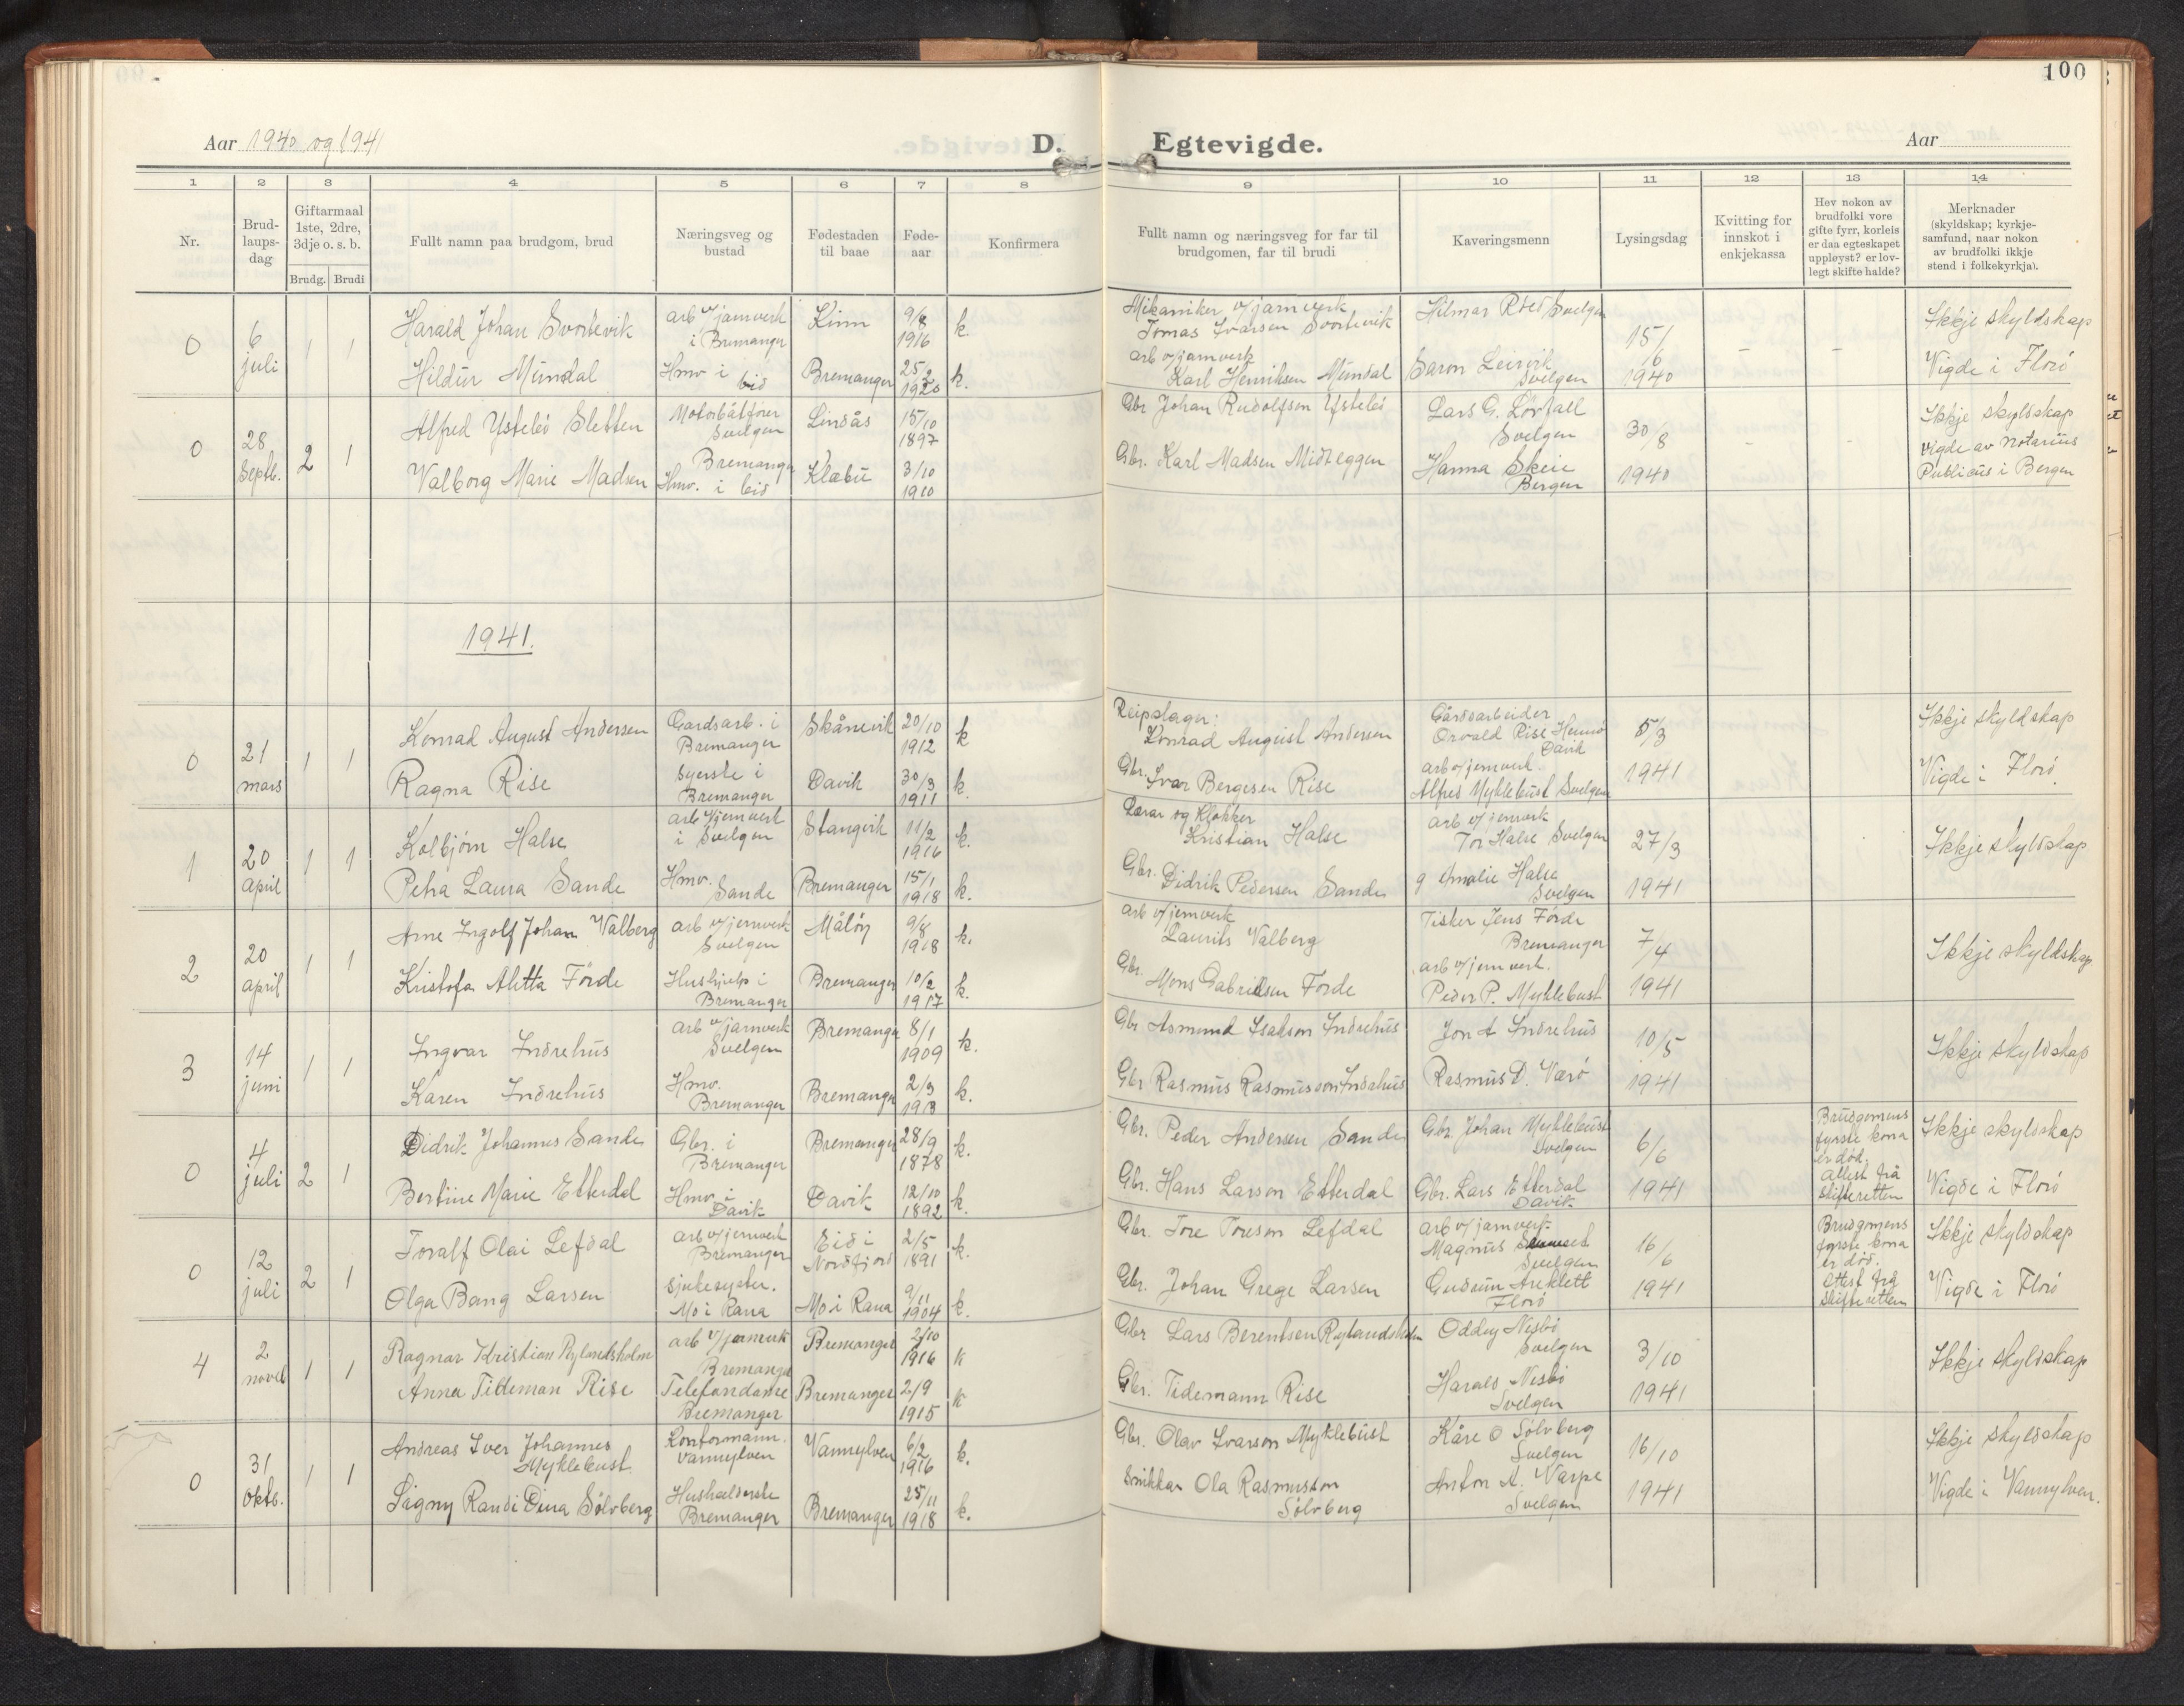 100
Aar 1940 og 1941
D. Egtevigde.
Aar
1 2 3 4 5 6 7 8 9 10 11 12 13 14
Nr.
Brud-
laups-
dag
Giftarmaal
1ste, 2dre,
3dje o. s. b.
Brudg. Brudi
Fullt namn paa brudgom, brud
Næringsveg og
bustad
Fødestaden
til baae
Føde-
aar
Konfirmera
Fullt namn og næringsveg for far til
brudgomen, far til brudi
Kaveringsmenn
Lysingsdag
Kvitting for
innskot i
enkjekassa
Hev nokon av
brudfolki vore
gifte fyrr, korleis
er daa egteskapet
uppløyst? er lov-
legt skifte halde?
Merknader
(skyldskap; kyrkje-
samfund, naar nokon
av brudfolki ikkje
stend i folkekyrkja).
0 6 juli 1 1
Harald Johan Svortevik arb v/jarnverk i Bremanger Kinn 9/8 1916 k.
Mekaniker v/jarnverk Tomas Ivarsen Svortevik Hilmar Roed Svelgen 15/6 1940 - -
Ikkje skyldskap
Hildur Mundal Hmv i bid Bremanger 25/2 1920 k.
arb v/jarnverk Karl Henriksen Mundal Saron Leirvik Svelgen
Vigde i Florö
0 28 Septb. 2 1
Alfred Ystebö Sletten Motorbåtförer Svelgen Lindås 15/10 1897
Gbr Johan Rudolfson Ystebö Lars G. Svelgen 30/8 1940 - -
Ikkje skyldskap
Valborg Marie Madsen Bremanger Hmv. i bid Klæbu 3/10 1910
Gbr. Karl Madsen Midteggen Hanna Skeie Bergen
Vigde av Notarius
Publicus i Bergen
1941.
0 21 mars 1 1
Konrad August Andersen Gardsarb. i Bremanger Skånevik 20/10 1912 k
Reipslager: Konrad August Andersen Gårdsarbeider Orvald Rise Davik 5/3 1941
Ikkje skyldskap
Ragna Rise Syerske i Bremanger Davik 30/3 1911 k.
Gbr. Ivar Bergesen Rise arb v/jernverk. Alfred Myklebust Svelgen
Vigde i Florö.
1 20 april 1 1
Kolbjörn Halse arb v/jernverk i Svelgen Stangvik 11/2 1916 k.
Lærar og Klokker Kristian Halse arb v/jernverk Tor Halse Svelgen 27/3 1941
Ikkje skyldskap
Petra Laura Sande Hmv. Sande Bremanger 15/1 1918 k.
Gbr. Didrik Pedersen Sande g Amalie Halse Svelgen
2 20 april 1 1
Arne Ingolf Johan Valberg arb v/jernverk Svelgen Måløy 9/8 1918 k.
arb v/jernverk Laurits Valberg Fisker Jens Förde Bremanger 7/4 1941
Ikkje skyldskap
Kristofa Aletta Förde Hushjelp i Bremanger Bremanger 10/2 1917 k.
Gbr. Mons Gabrielsen Förde arb v/jernverk. Peder P. Myklebust
3 14 juni 1 1
Ingvar Indrehus arb v/jarnverk Svelgen Bremanger 8/1 1909 k.
Gbr Asmund Isakson Indrehus Jon A Indrehus 10/5 1941
Ikkje skyldskap
Karen Indrehus Hmv. Bremanger Bremanger 2/3 1913 k.
Gbr Rasmus Rasmusson Indrehus Rasmus D. Varö
0 4 juli 2 1
Didrik Johannes Sande Gbr. i Bremanger Bremanger 28/9 1878 k.
Gbr. Peder Andersen Sande Gbr. Johan Myklebust Svelgen 6/6 1941
Brudgomens fyrste kona er död. Attest frå skifteretten
Ikkje skyldskap
Bertine Marie Etterdal Hmv i Davik Davik 12/10 1892 k.
Gbr. Hans Larson Etterdal Gbr. Lars Etterdal Davik
Vigde i Florö
0 12 juli 2 1
Toralf Olai Lefdal arb v/jernverk Bremanger Eid i Nordfjord 2/5 1891 k.
Gbr. Tore Toreson Lefdal arb v/jarnverk Magnus Svelgen 16/6 1941
Brudgomens fyrste kona er död. Attest frå skifteretten
Ikkje skyldskap
Olga Bang Larsen Sjukesyster. Mo i Rana Mo i Rana 9/11 1904 k.
Gbr. Johan Grege Larsen Gudrun Arklett Florö
Vigde i Florö
4 2 novb 1 1
Ragnar Kristian Rylandsholm arb v/jarnverk Bremanger Bremanger 2/10 1916 k
Gbr Lars Berentsen Rylandsholm Oddny Nesbö Svelgen 3/10 1941
Ikkje skyldskap
Anna Tideman Rise Telefondame Bremanger Bremanger 2/9 1915 k
Gbr. Tidemann Rise Harald Nesbö Svelgen
0 31 Oktb. 1 1
Andreas Iver Johannes Myklebust Kontormann. Vannylven Vannylven 6/2 1916 k.
Gbr. Olav Ivarson Myklebust Kåre O Sölvberg Svelgen 16/10 1941
Ikkje skyldskap
Sågny Randi Dina Sölvberg Hushalderske Bremanger Bremanger 25/11 1918 k.
Snikkar Ola Rasmusson Sölvberg Anton A. Varpe Svelgen
Vigde i Vannylven.